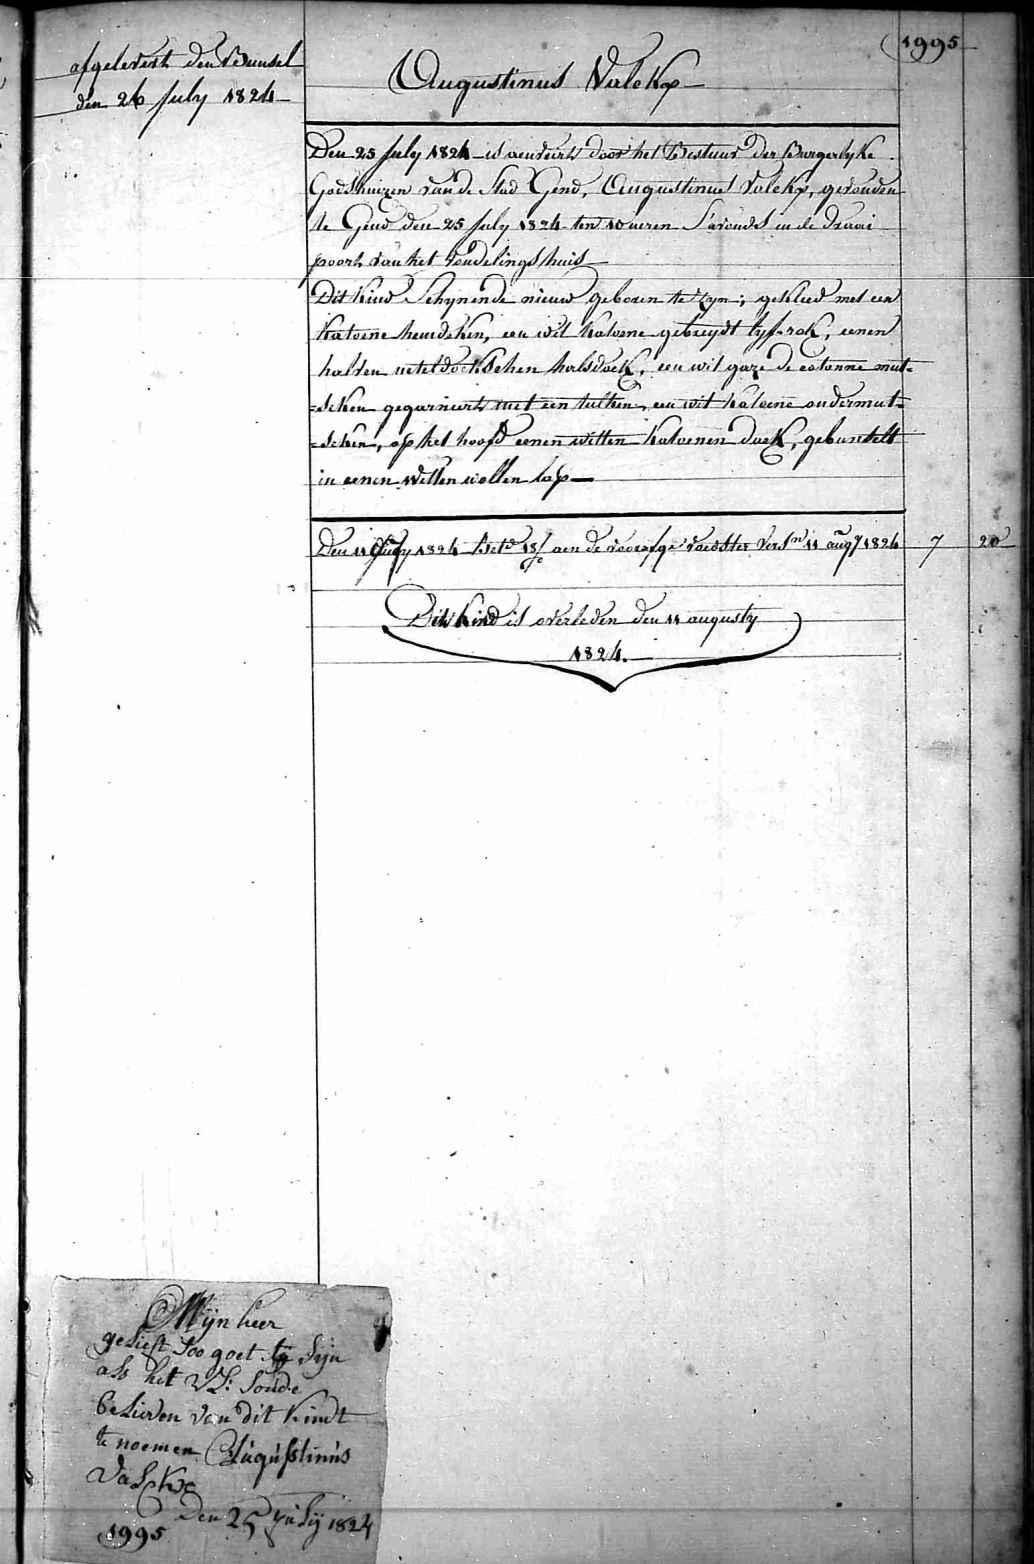 1995
afgelevert den Bunsel
den 26 july 1824
Augustinus Valckx
Den 25 july 1824 is aenveirt door het Bestuur der Burgerlyke
Godshuizen van de Stad Gend, Augustinus Valckx, gevonden
te Gend den 25 july 1824 ten 10 ueren S'avonds in de draai
poort van het vondelingshuis
Dit kind Schynende nieuw geboren te zyn, gekleed met een
katoene hemdeken, een wit katoene gebreydt lyf-rok, eenen
halven neteldoekschen halsdoek, een wit gaze de cotonne mut=
=scken gegarniert met een tulken, een wit katoene ondermut=
=scken, op het hoofd eenen witten katoenen doek, gebuntelt
in eenen witten wollen lap
Den 11 1824 Bet^d aen de voedster 11 aug 1824 7 20
Dit kind is overleden den 11 augusty
1824.
Mijn heer
gelieft soo goet te sijn
als het UL: soude
believen van dit kindt
te noemen Augustinus
Valckx
Den 25 july 1824
1995